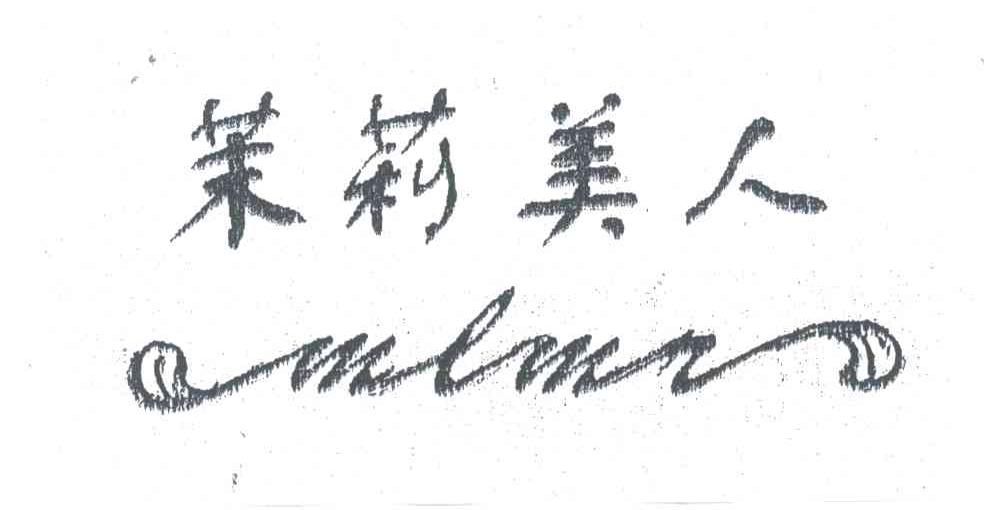 茉莉美人
mlmr